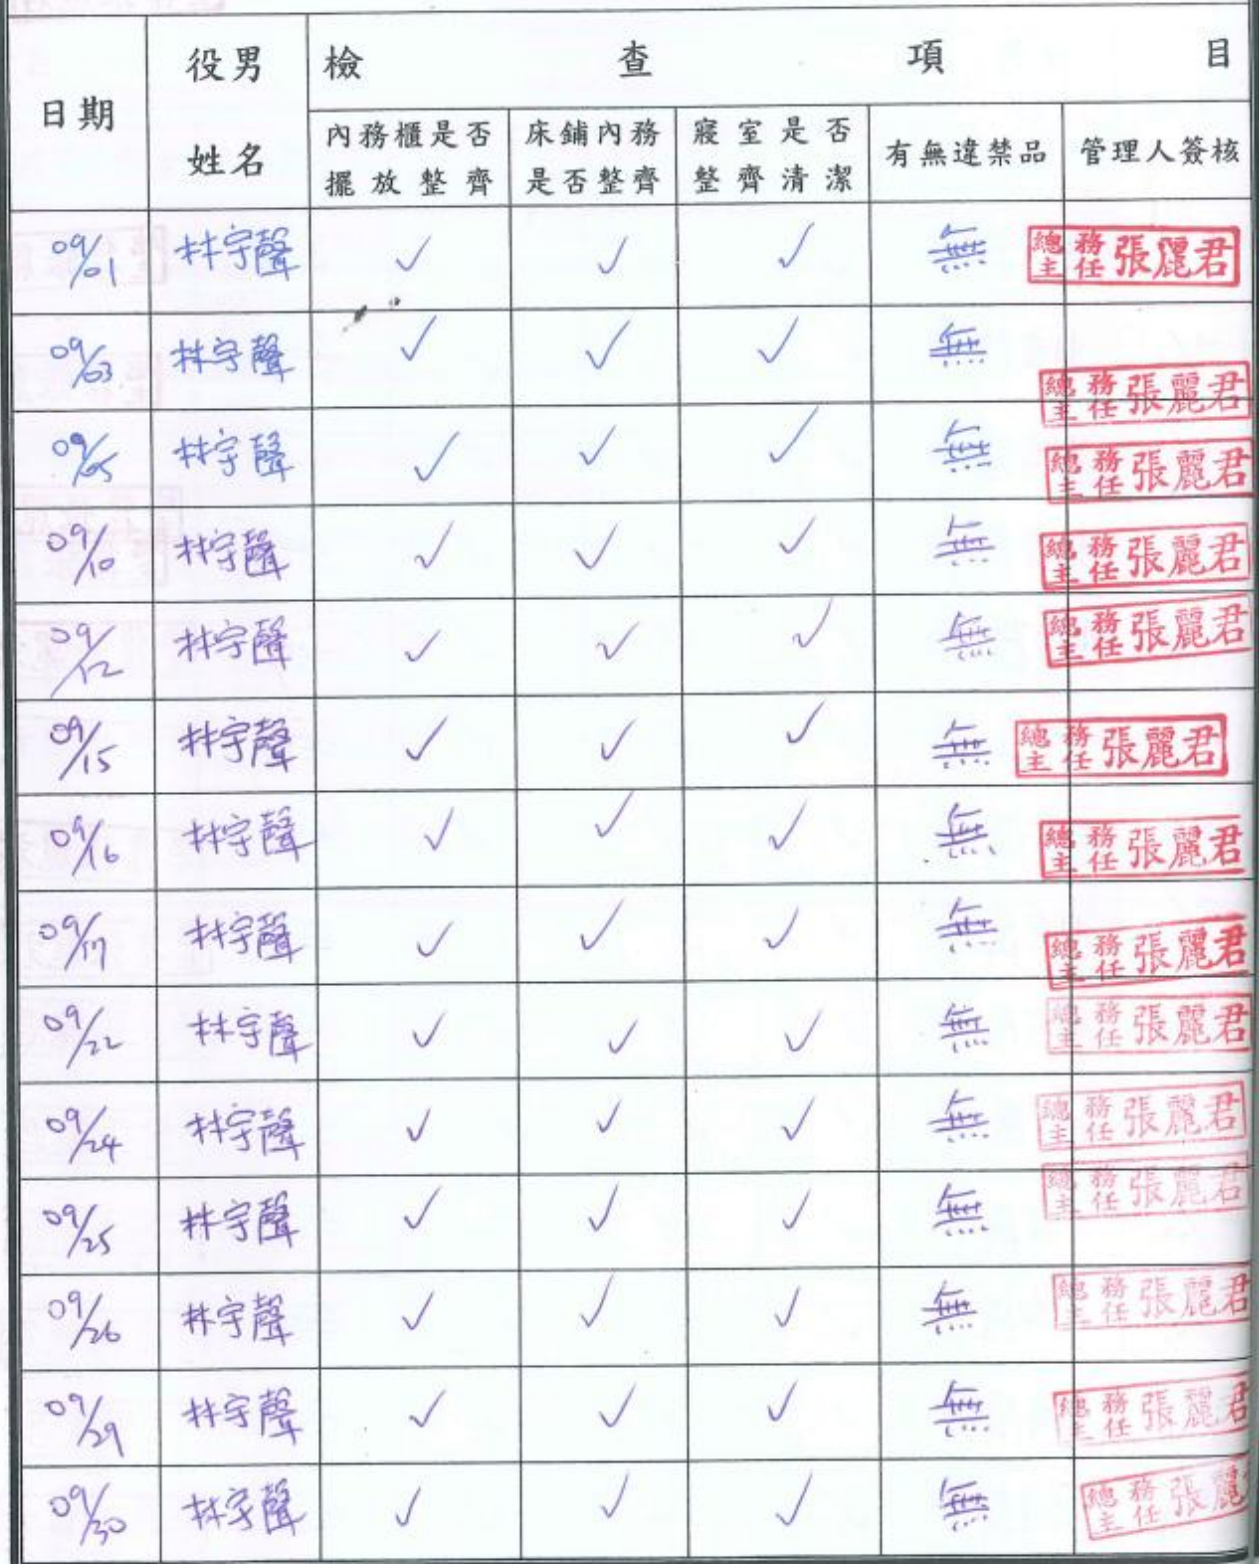 日期 役男姓名 檢查項目
內務櫃是否擺放整齊 床鋪內務是否整齊 寢室是否整齊清潔 有無違禁品 管理人簽核
09/01 林宇聲 ✓ ✓ ✓ 無 總務主任 張麗君
09/03 林宇聲 ✓ ✓ ✓ 無 總務主任 張麗君
09/05 林宇聲 ✓ ✓ ✓ 無 總務主任 張麗君
09/10 林宇聲 ✓ ✓ ✓ 無 總務主任 張麗君
09/12 林宇聲 ✓ ✓ ✓ 無 總務主任 張麗君
09/15 林宇聲 ✓ ✓ ✓ 無 總務主任 張麗君
09/16 林宇聲 ✓ ✓ ✓ 無 總務主任 張麗君
09/17 林宇聲 ✓ ✓ ✓ 無 總務主任 張麗君
09/22 林宇聲 ✓ ✓ ✓ 無 總務主任 張麗君
09/24 林宇聲 ✓ ✓ ✓ 無 總務主任 張麗君
09/25 林宇聲 ✓ ✓ ✓ 無 總務主任 張麗君
09/26 林宇聲 ✓ ✓ ✓ 無 總務主任 張麗君
09/29 林宇聲 ✓ ✓ ✓ 無 總務主任 張麗君
09/30 林宇聲 ✓ ✓ ✓ 無 總務主任 張麗